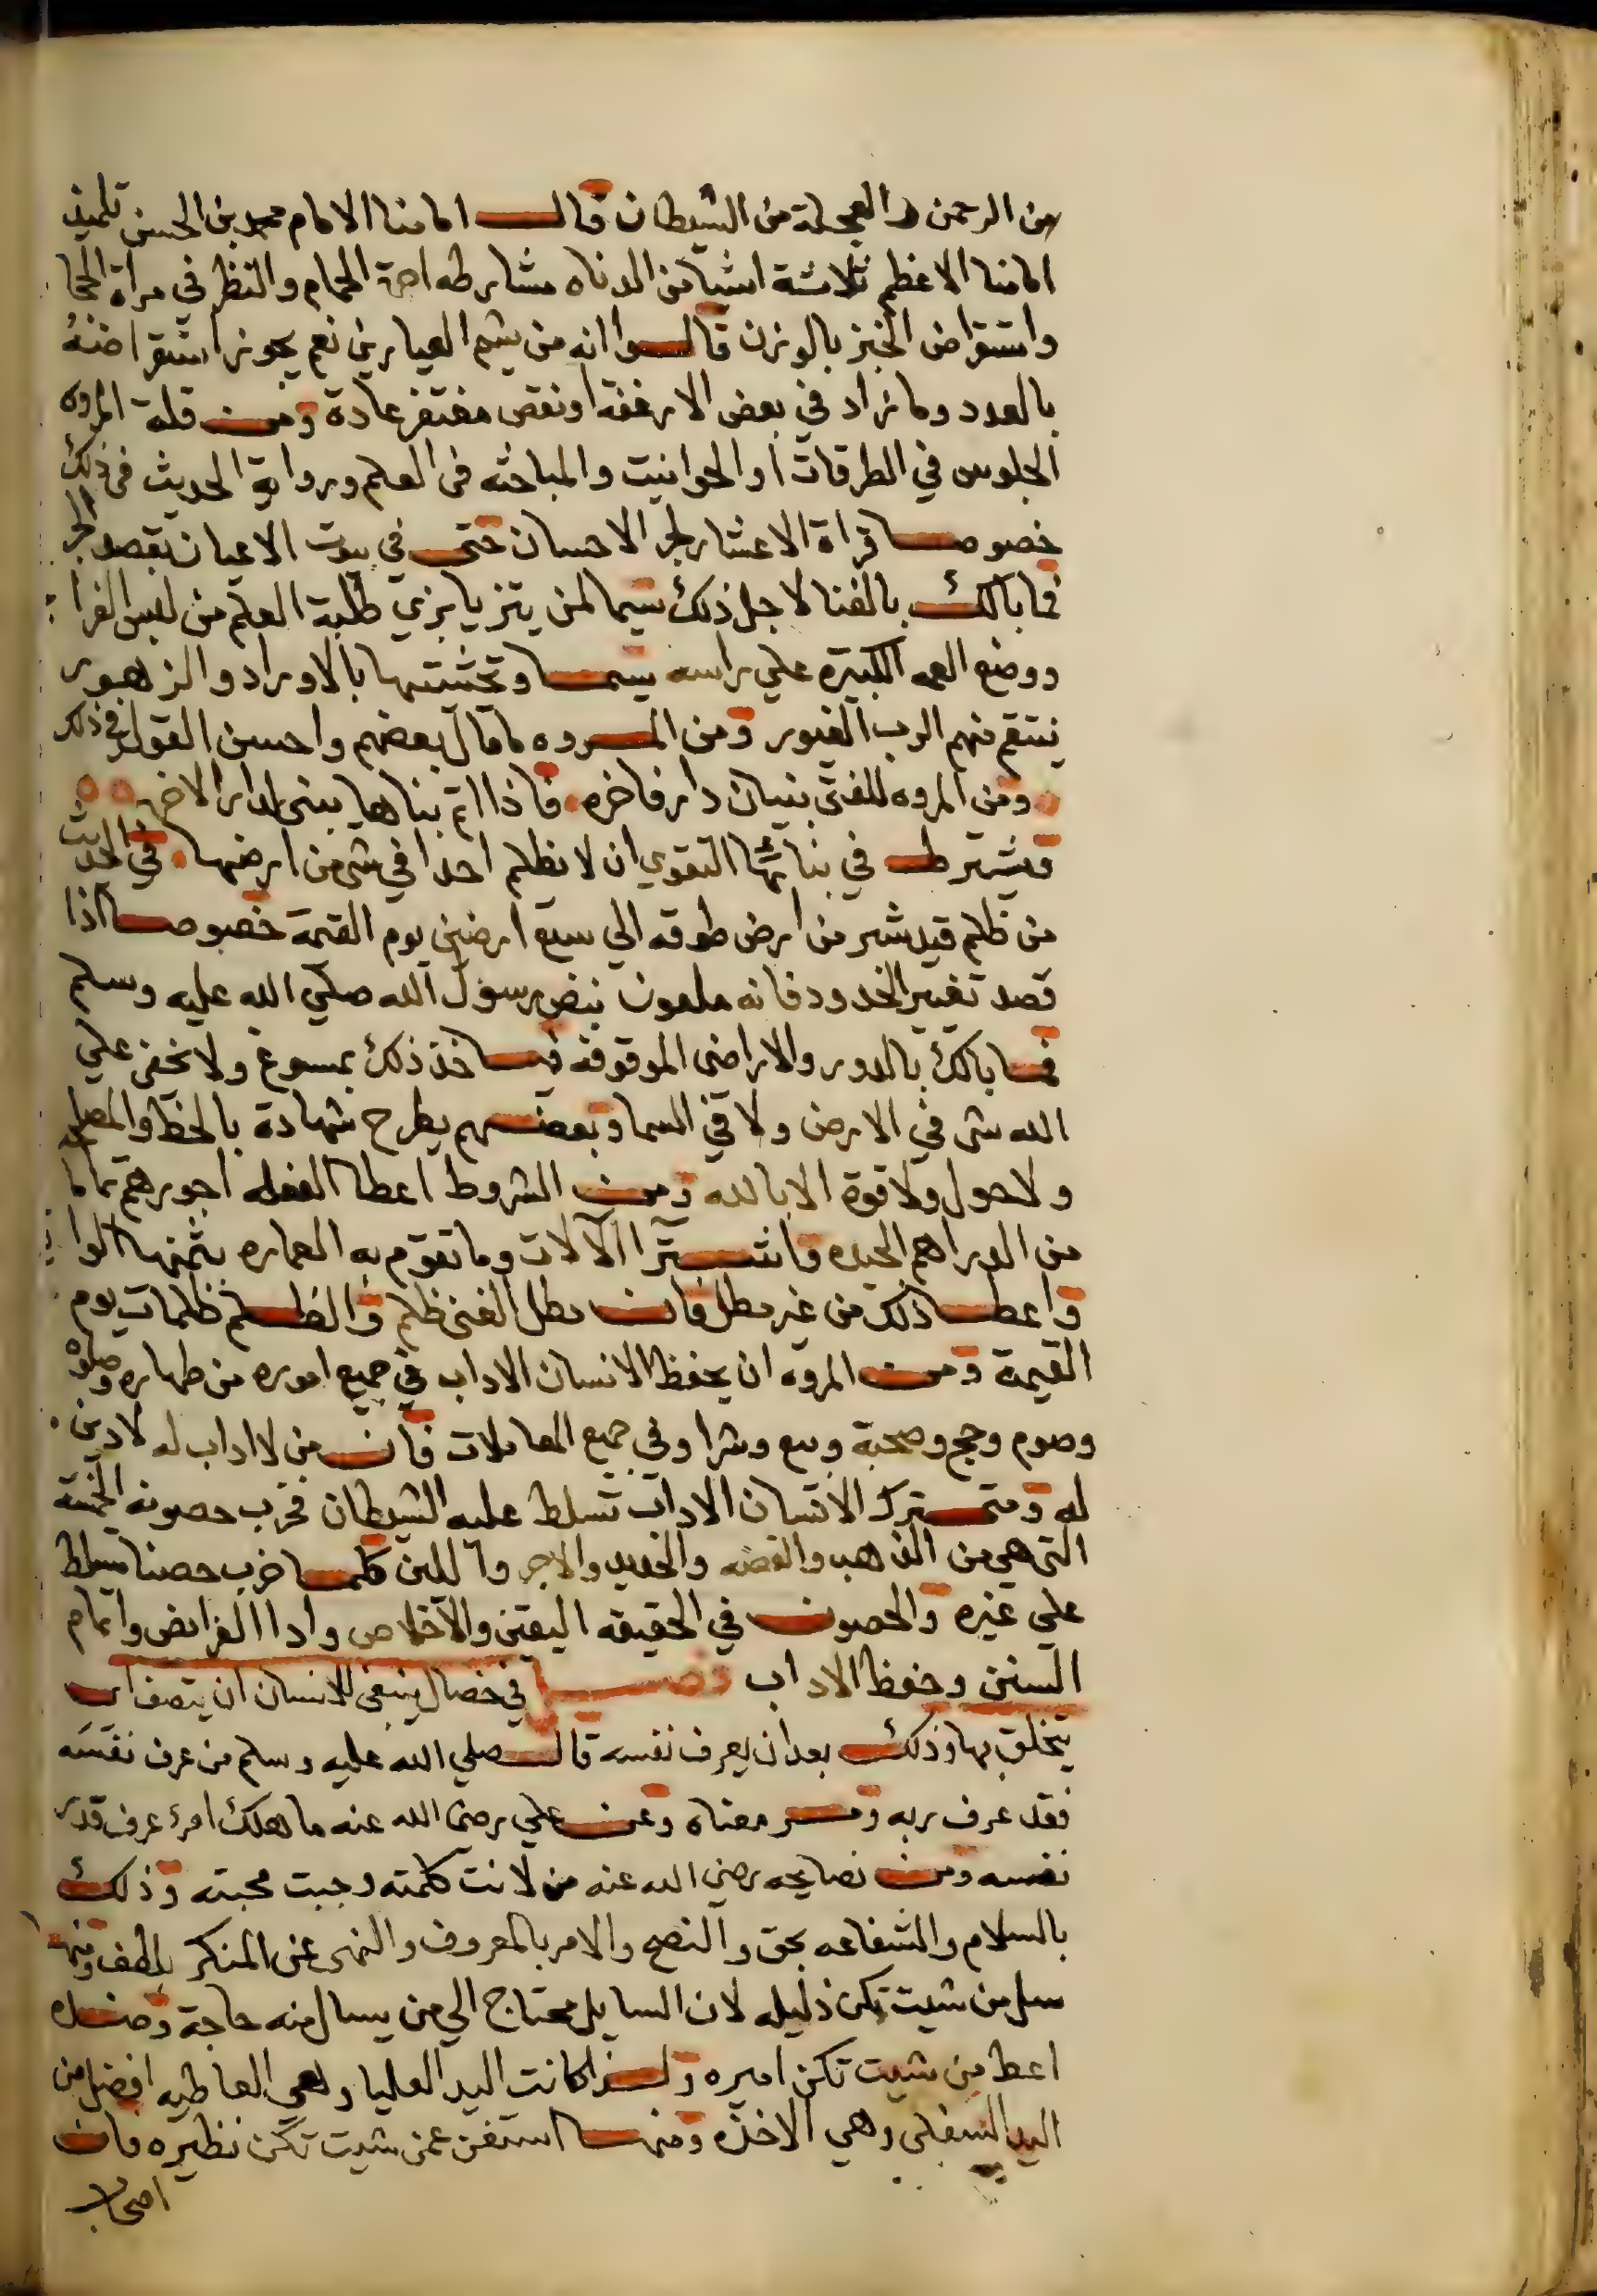 من الرحمن والعجلة من الشيطان قال امامنا الامام محمد بن الحسن تلميذ
امامنا الاعظم ثلاثة اشيا من الدناه مشارطه اجرة الحمام والنظر في مراة الحجا
واستقراض الخبز بالوزن قالوا انه من شيم العيارين نعم يجوز استقراضه
بالعدد وما زاد في بعض الارغفه او نقص مغتفر عادة ومن قلة المروه
الجلوس في الطرقات او الحوانيت والمباحثه في العلم ورواية الحديث في ذلك
خصوصا قراة الاعشار لجر الاحسان حتى في بيوت الاعيان بقصد الجر
فما بالك بالغنا لاجل ذلك سيما لمن يتزيا بزي طلبة العلم من لبس الفرا
ووضع العمه الكبيره علي راسه سيما وتحشيتها بالاوراد والزهور
ينتقم منهم الرب الغيور ومن المروه ما قال بعضهم واحسن القول في ذلك
ومن المروه للفتى بنيان دار فاخره فاذا اتم بناها يبنى لدار الاخره
ويشترط في بنائها التقوي ان لا يظلم احدا في شي من ارضها في الحديث
من ظلم قيد شبر من ارض طوقه الي سبع ارضين يوم القيمة خصوصا اذا
قصد تغيير الحدود فانه ملعون بنص رسول الله صلي الله عليه وسلم
فما بالك بالدور والاراضى الموقوفه فياخذ ذلك بمسوغ ولا يخفى علي
الله شى في الارض ولا في السما وبعضهم يطرح شهادة بالخط والمصلحه
ولا حول ولا قوة الا بالله ومن الشروط اعطا الفعله اجورهم تماما
من الدراهم الجيده وان تشترا الآلات وما تقوم به العماره بثمنها الوافي
واعطا ذلك من غير مطل فان مطل الغنى ظلم والظلم ظلمات يوم
القيمة ومن المروه ان يحفظ الانسان الاداب في جميع اموره من طهاره وصلوه
وصوم وحج وصحبة وبيع وشرا وفي جميع المعاملات فان من لا اداب له لا دين
له ومتى ترك الانسان الاداب تسلط عليه الشيطان فخرب حصونه الخمسه
التى هي من الذهب والفضه والحديد والاجر واللبن كلما خرب حصنا تسلط
علي غيره والحصون في الحقيقه اليقين والاخلاص وادا الفرايض واتمام
السنن وحفظ الاداب فصل في خصال ينبغى للانسان ان يتصف اي
يتخلق بها وذلك بعد ان يعرف نفسه قال صلي الله عليه وسلم من عرف نفسه
فقد عرف ربه ومر معناه وعن علي رضى الله عنه ما هلك امرؤ عرف قدر
نفسه ومن نصايحه رضي الله عنه من لانت كلمته وجبت محبته وذلك
بالسلام والشفاعه بحق والنصح والامر بالمعروف والنهى عن المنكر بلطف ومنها
سل من شيت تكن ذليله لان السايل محتاج الي من يسال منه حاجة وضده
اعط من شيت تكن اميره ولذا كانت اليد العليا وهي العاطيه افضل من
اليد السفلى وهي الاخذه ومنها استغن عمن شيت تكن نظيره فان
اصحاب